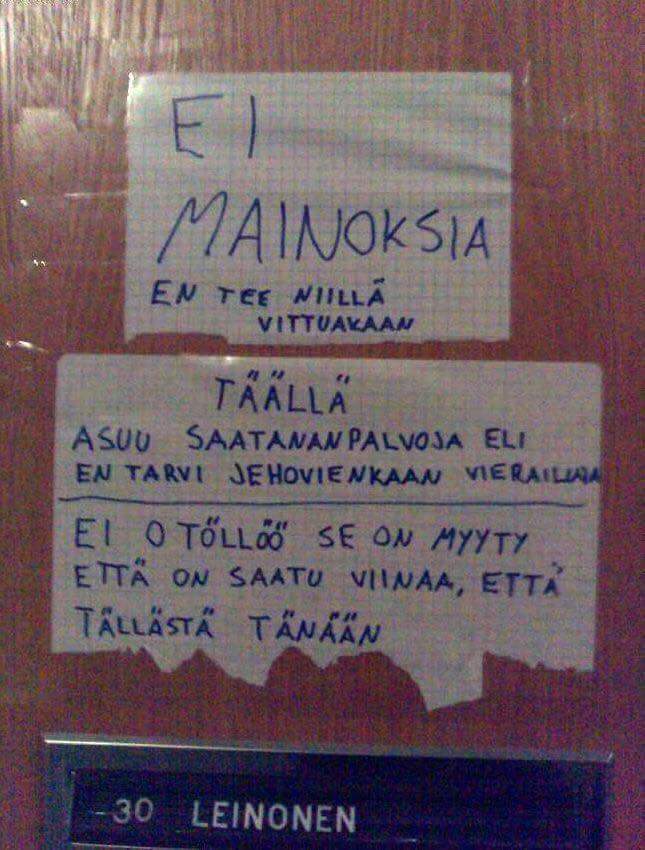 EI
MAINOKSIA
EN TEE NIILLÄ
VITTUAKAAN
TÄÄLLÄ
ASUU SAATANANPALVOJA ELI
EN TARVI JEHOVIENKAAN VIERAILUJA
EI O TÖLLÖÖ SE ON MYYTY
ETTÄ ON SAATU VIINAA, ETTÄ
TÄLLÄSTÄ TÄNÄÄN
30 LEINONEN